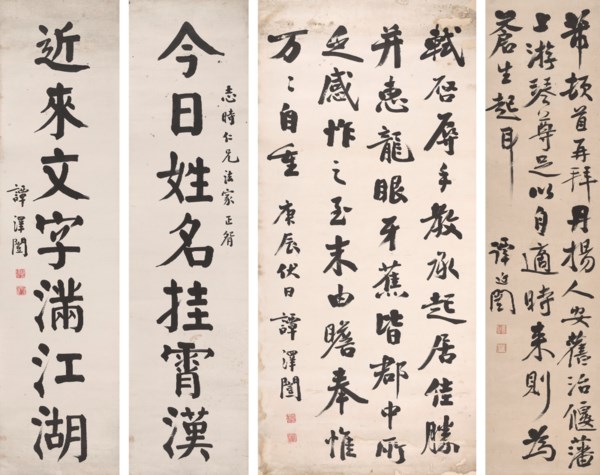 芾頓首再拜丹揚人安舊治偃藩
上游琴尊足以自適時來則為
蒼生起耳
譚澤闓
軾啓辱手教承起居佳勝
并惠龍眼牙蕉皆郡中所
乏感怍之至末由瞻奉惟
万〻自重 庚辰伏日譚澤闓
志時仁兄法家正
今日姓名挂霄漢
近來文字滿江湖
譚澤闓